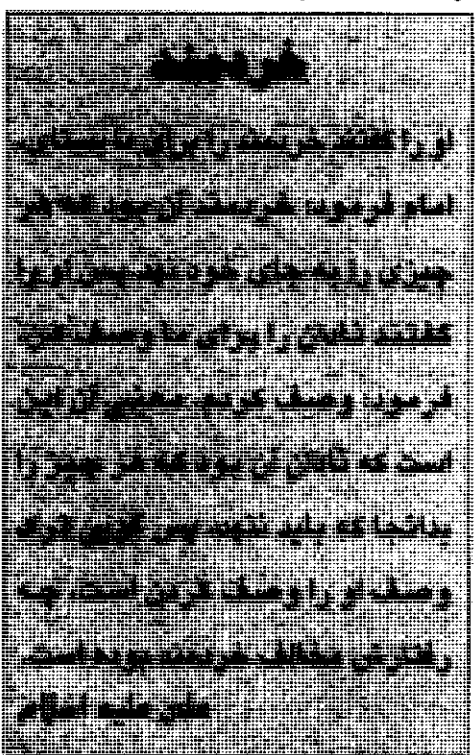 خردمند
او را گفتند خردمند را برای ما بستای،
امام فرمود: خردمند آن بود که هر
چیزی را به جای خود نهد. پس او را
گفتند نادان را برای ما وصف کن،
فرمود: وصف کردم. معنی آن این
است که نادان آن بود که هر چیز را
بدانجا که باید ننهد، پس گویی ترک
وصف او را وصف کردن است، چه
رفتارش مخالف خردمند بوده است.
علی علیه السلام